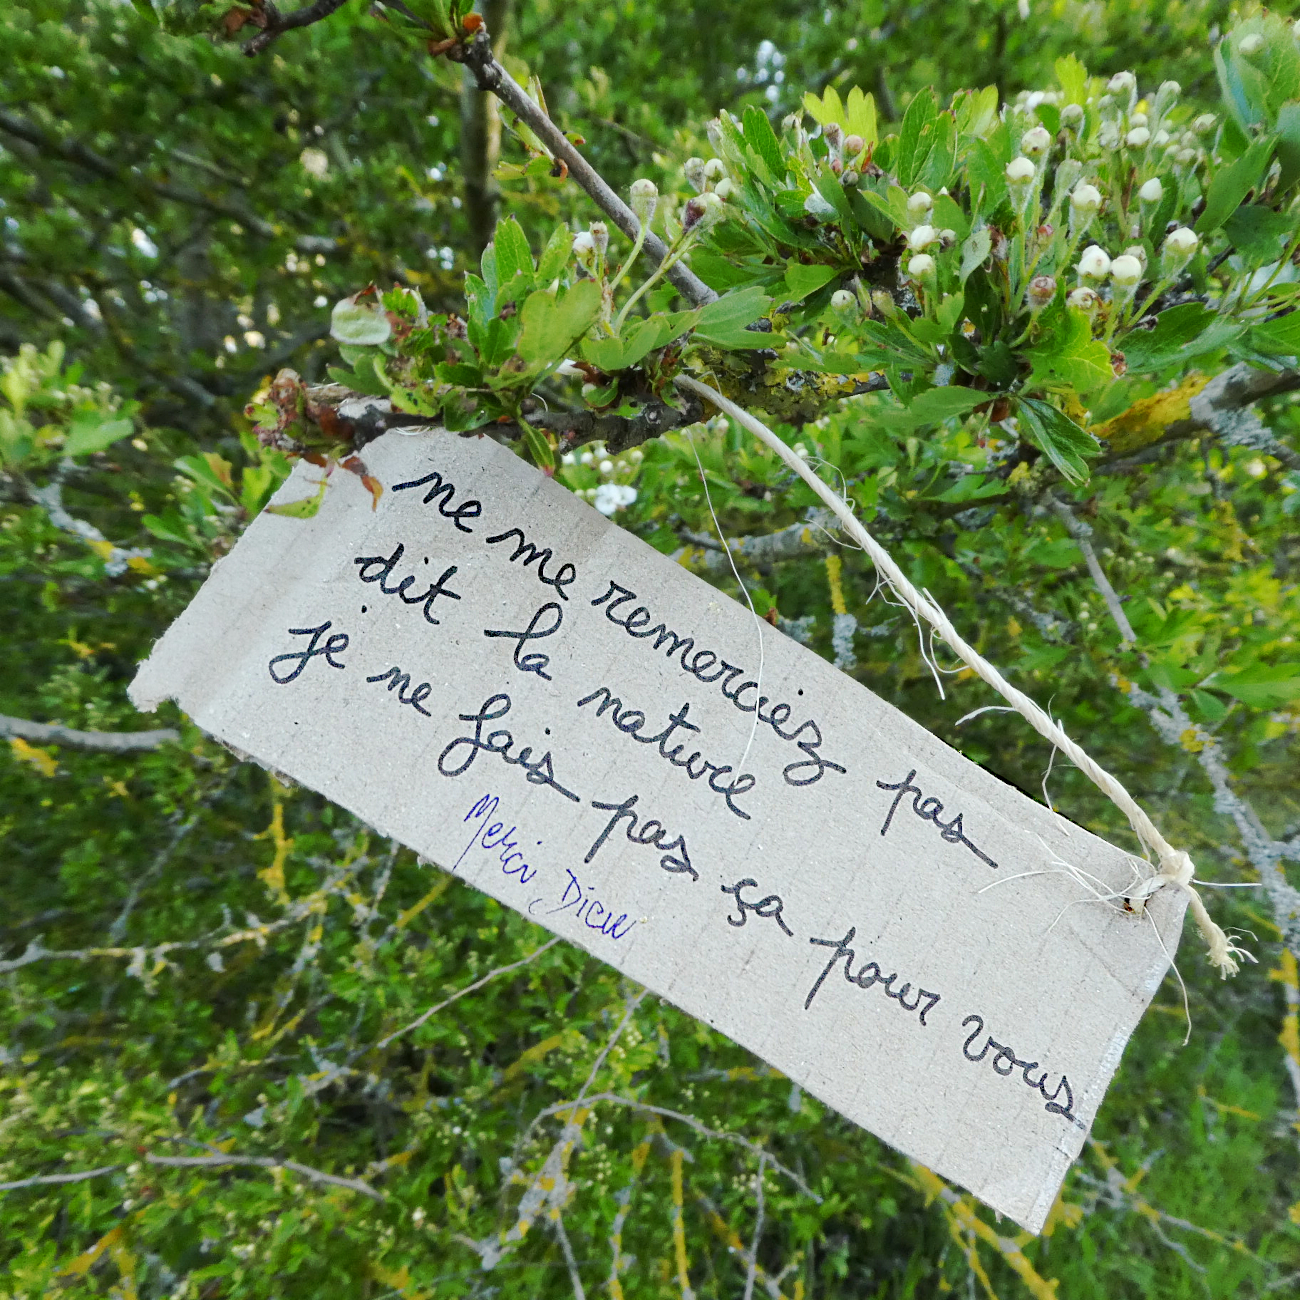 ne me remerciez pas
dit la nature
je ne fais pas ça pour vous
Merci Dieu